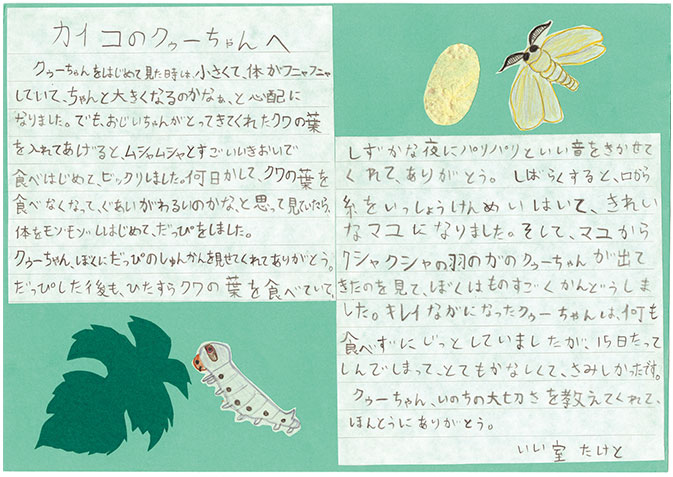 カイコのクゥーちゃんへ
クゥーちゃんをはじめて見た時は、小さくて、体がフニャフニャ
していて、ちゃんと大きくなるのかなぁ、と心配に
なりました。でも、おじいちゃんがとってきてくれたクワの葉
を入れてあげると、ムシャムシャとすごいいきおいで
食べはじめて、ビックリしました。何日かして、クワの葉を
食べなくなって、ぐあいがわるいのかな、と思って見ていたら、
体をモゾモゾッしはじめて、だっぴをしました。
クゥーちゃん、ぼくにだっぴのしゅんかんを見せてくれてありがとう。
だっぴした後も、ひたすらクワの葉を食べていて、
しずかな夜にパリパリといい音をきかせて
くれて、ありがとう。しばらくすると、口から
糸をいっしょうけんめいはいて、きれい
なマユになりました。そして、マユから
クシャクシャの羽のガのクゥーちゃんが出て
きたのを見て、ぼくはものすごくかんどうしま
した。キレイなガになったクゥーちゃんは、何も
食べずにじっとしていましたが、15日たって
しんでしまって、とてもかなしくて、さみしかったです。
クゥーちゃん、いのちの大切さを教えてくれて、
ほんとうにありがとう。
いい室 たけと